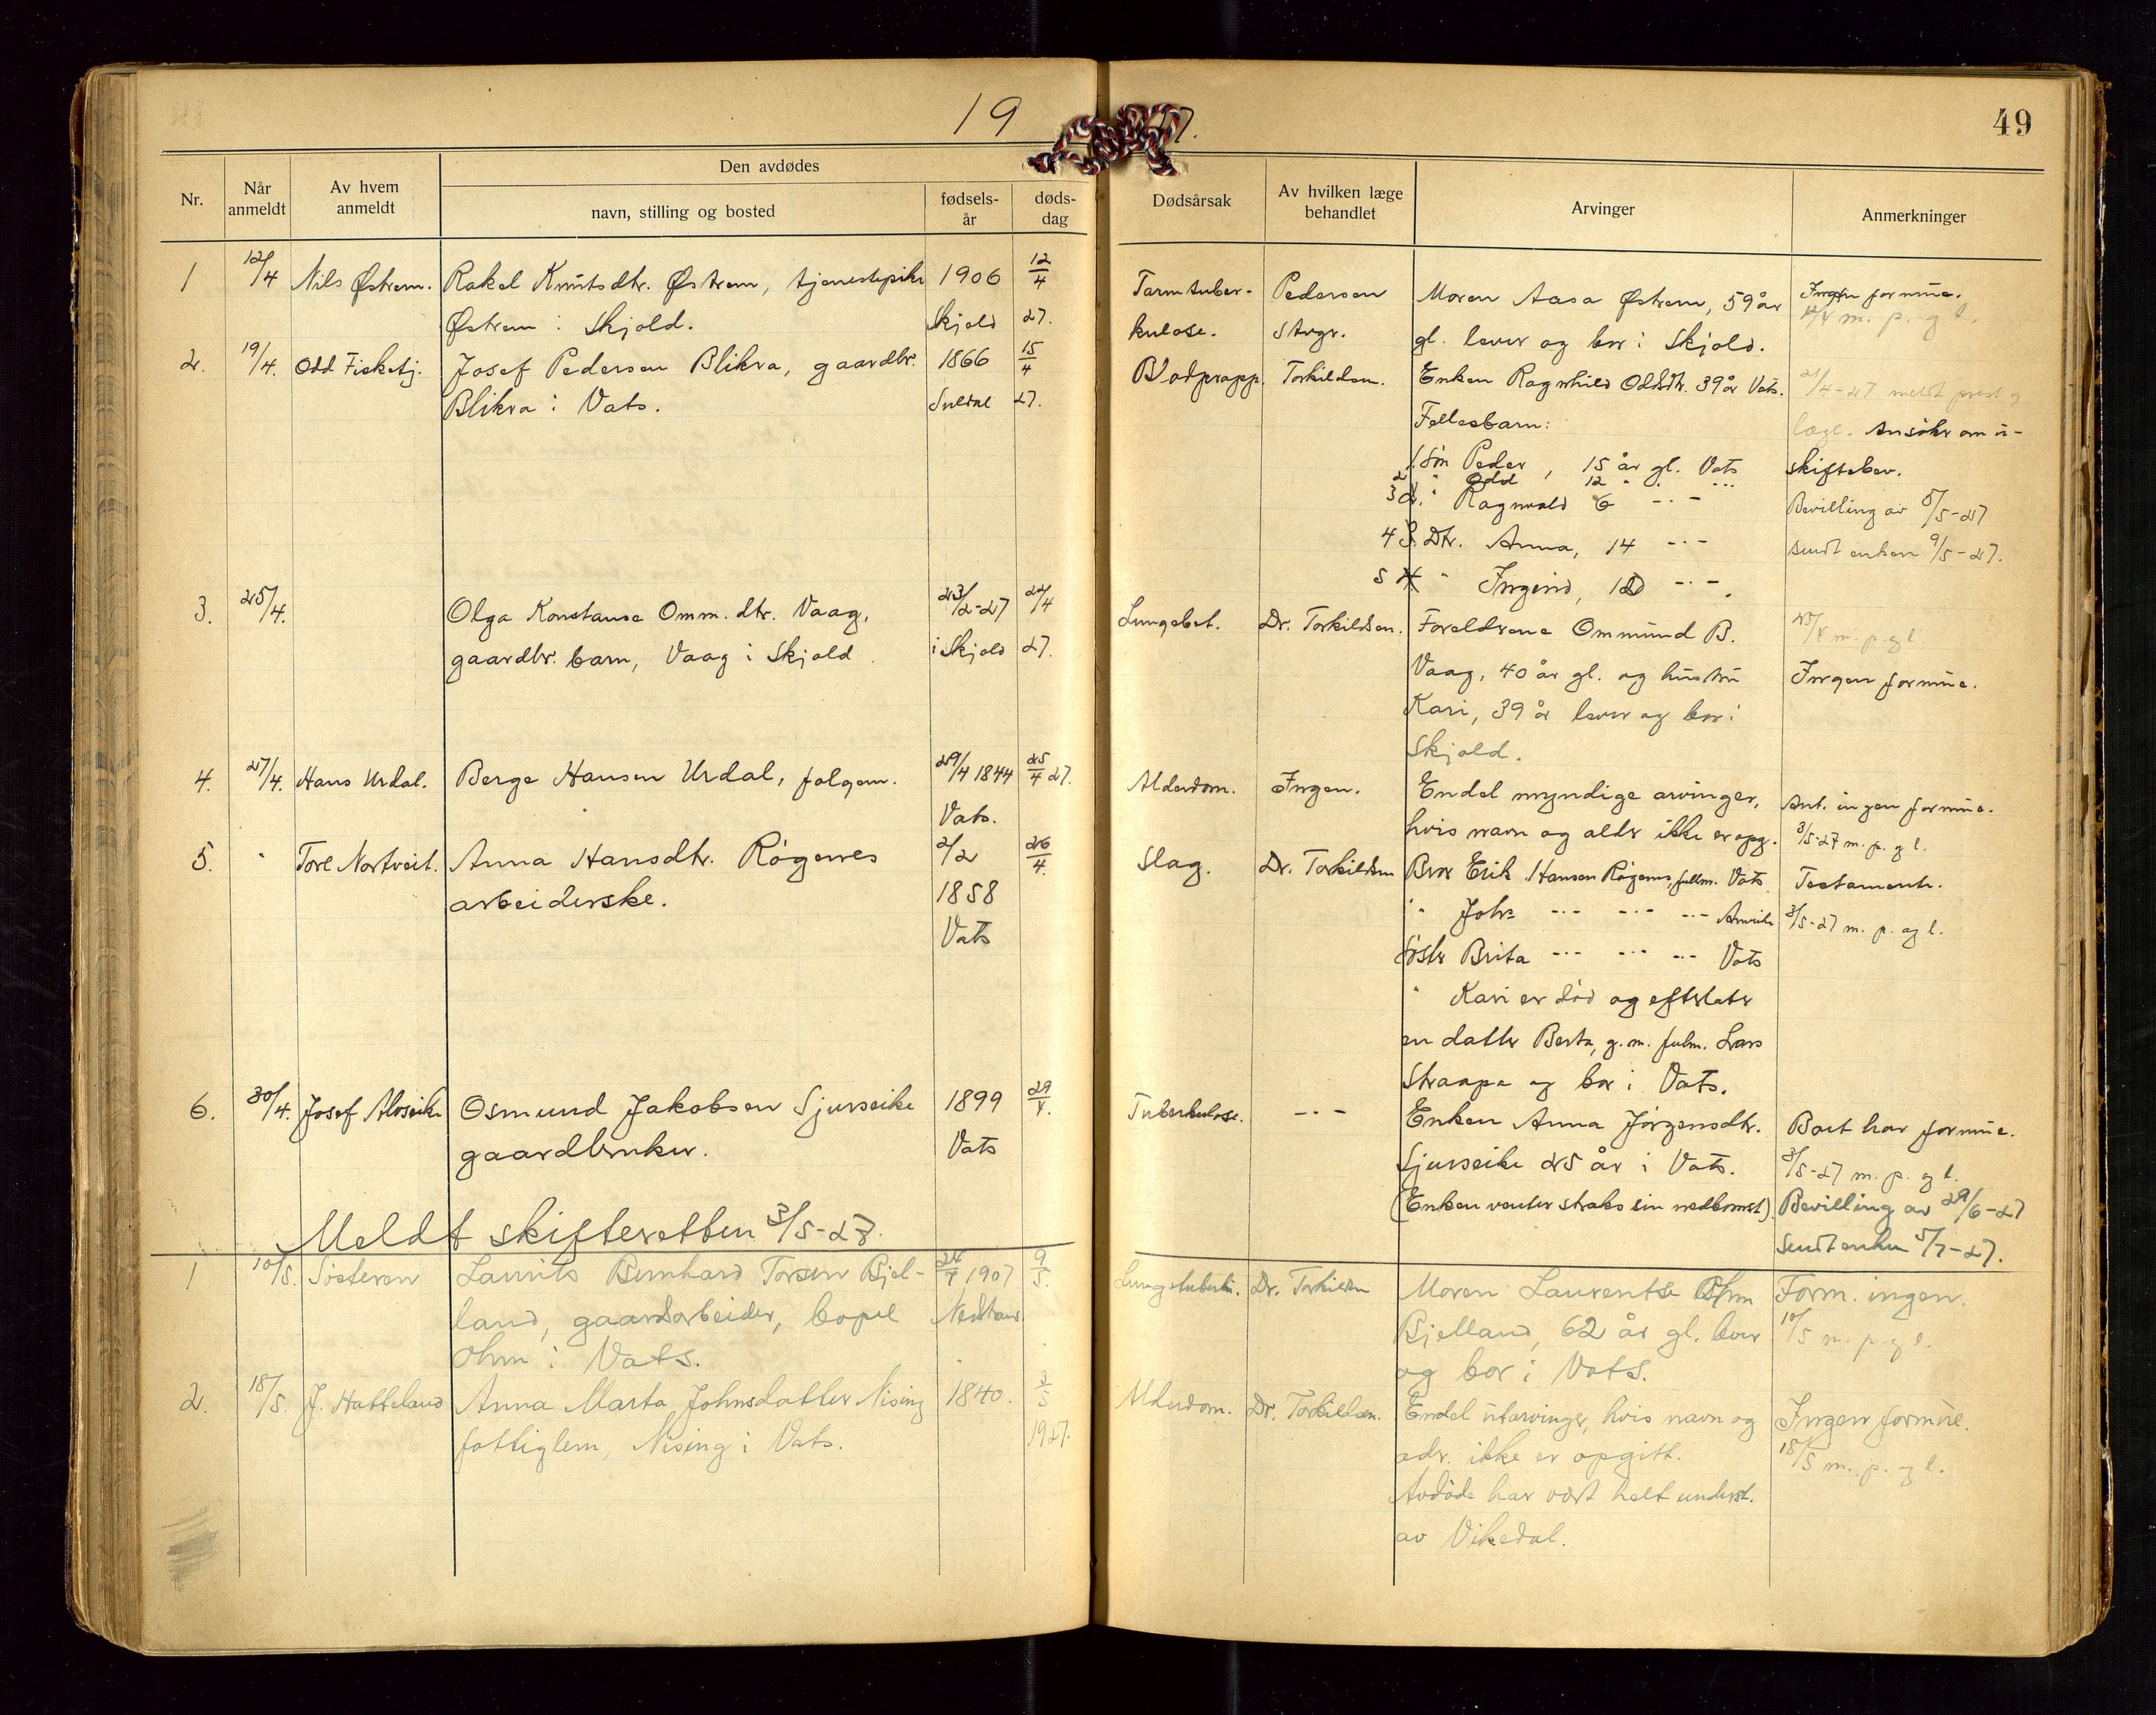 19 27.
49
Den avdødes
Nr.
Når anmeldt
Av hvem anmeldt
navn, stilling og bosted
fødsels-år
døds-dag
Dødsårsak
Av hvilken læge behandlet
Arvinger
Anmerkninger
1 12/4 Nils Østrem. Rakel Knutsdtr. Østrem, tjenestepike 1906 12/4 Tarmtuber- Pedersen Moren Aasa Østrem, 59 år Ingen formue.
Østrem i Skjold. Skjold 27. kulose. Stvgr. gl. lever og bor i Skjold. 12/4 m. p. og l.
2. 19/4. Odd Fisketj. Josef Pedersen Blikra, gaardbr. 1866 15/4 Blodpropp. Torkildsen. Enken Ragnhild Oddsdtr. 39 år Vats. 21/4-27 meldt prest og
Blikra i Vats. Suldal 27. Fellesbarn: læge. Ansøkr om u-
1. Søn Peder, 15 år gl. Vats skiftebev.
2 " Odd 12 " " ...
3 " Ragnvald 6 -"- Bevilling av 5/5-27
4 Dtr. Anna, 14 -"- sendt enken 9/5-27.
5 " Ingeird, 12 -"-.
3. 25/4. Olga Konstanse Omm.dtr. Vaag, 23/2-27 22/4 Lungebet. Dr. Torkildsen. Foreldrene Ommund B. 25/4 m. p. og l
gaardbr. barn, Vaag i Skjold. i Skjold 27. Vaag, 40 år gl. og hustru Ingen formue.
Kari, 39 år lever og bor i
Skjold.
4. 27/4. Hans Urdal. Berge Hansen Urdal, folgem. 29/4 1844 25/4 27. Alderdom. Ingen. Endel myndige arvinger, Ant. ingen formue.
Vats. hvis navn og alder ikke er opg. 3/5-27 m. p. og l.
5. " Tore Nortveit. Anna Hansdtr. Røgenes 2/2 26/4. Slag. Dr. Torkildsen Bror Erik Hansen Røgenes, fullm. Vats. Testamente.
arbeiderske. 1858 " John -"- -"- -"- Amerika 3/5-27 m. p. og l.
Vats Søster Brita -"- -"- -"- Vats
" Kari er død og efterlater
en datter Berta, g.m. fulm. Lars
Straapa og bor i Vats.
6. 30/4. Josef Alvseike Osmund Jakobsen Sjurseike 1899 29/4. Tuberkulose. -"- Enken Anna Jørgensdtr. Boet har formue.
gaardbruker. Vats Sjurseike 25 år i Vats. 3/5-27 m. p. og l.
(Enken venter straks sin nedkomst). Bevilling av 29/6-27
Meldt skifteretten 3/5-27. Sendt enken 5/7-27.
1 10/5. Søsteren Laurits Bernhard Torsen Bjel- 24/4 1907 9/5. Lungetuberku. Dr. Torkildsen Moren Laurentse Ohm Form. ingen.
land, gaardsarbeider, bopel Nedstrand. Bjelland, 62 år gl. lever 10/5 m. p. og l.
Ohm i Vats. og bor i Vats.
2. 18/5. J. Hatteland Anna Marta Johnsdatter Nising 1840. 3/5 Alderdom. Dr. Torkildsen. Endel utarvinger, hvis navn og Ingen formue.
fattiglem, Nising i Vats. 1927. adr. ikke er opgitt. 18/5 m. p. og l.
Avdøde har vært helt underst.
av Vikedal.